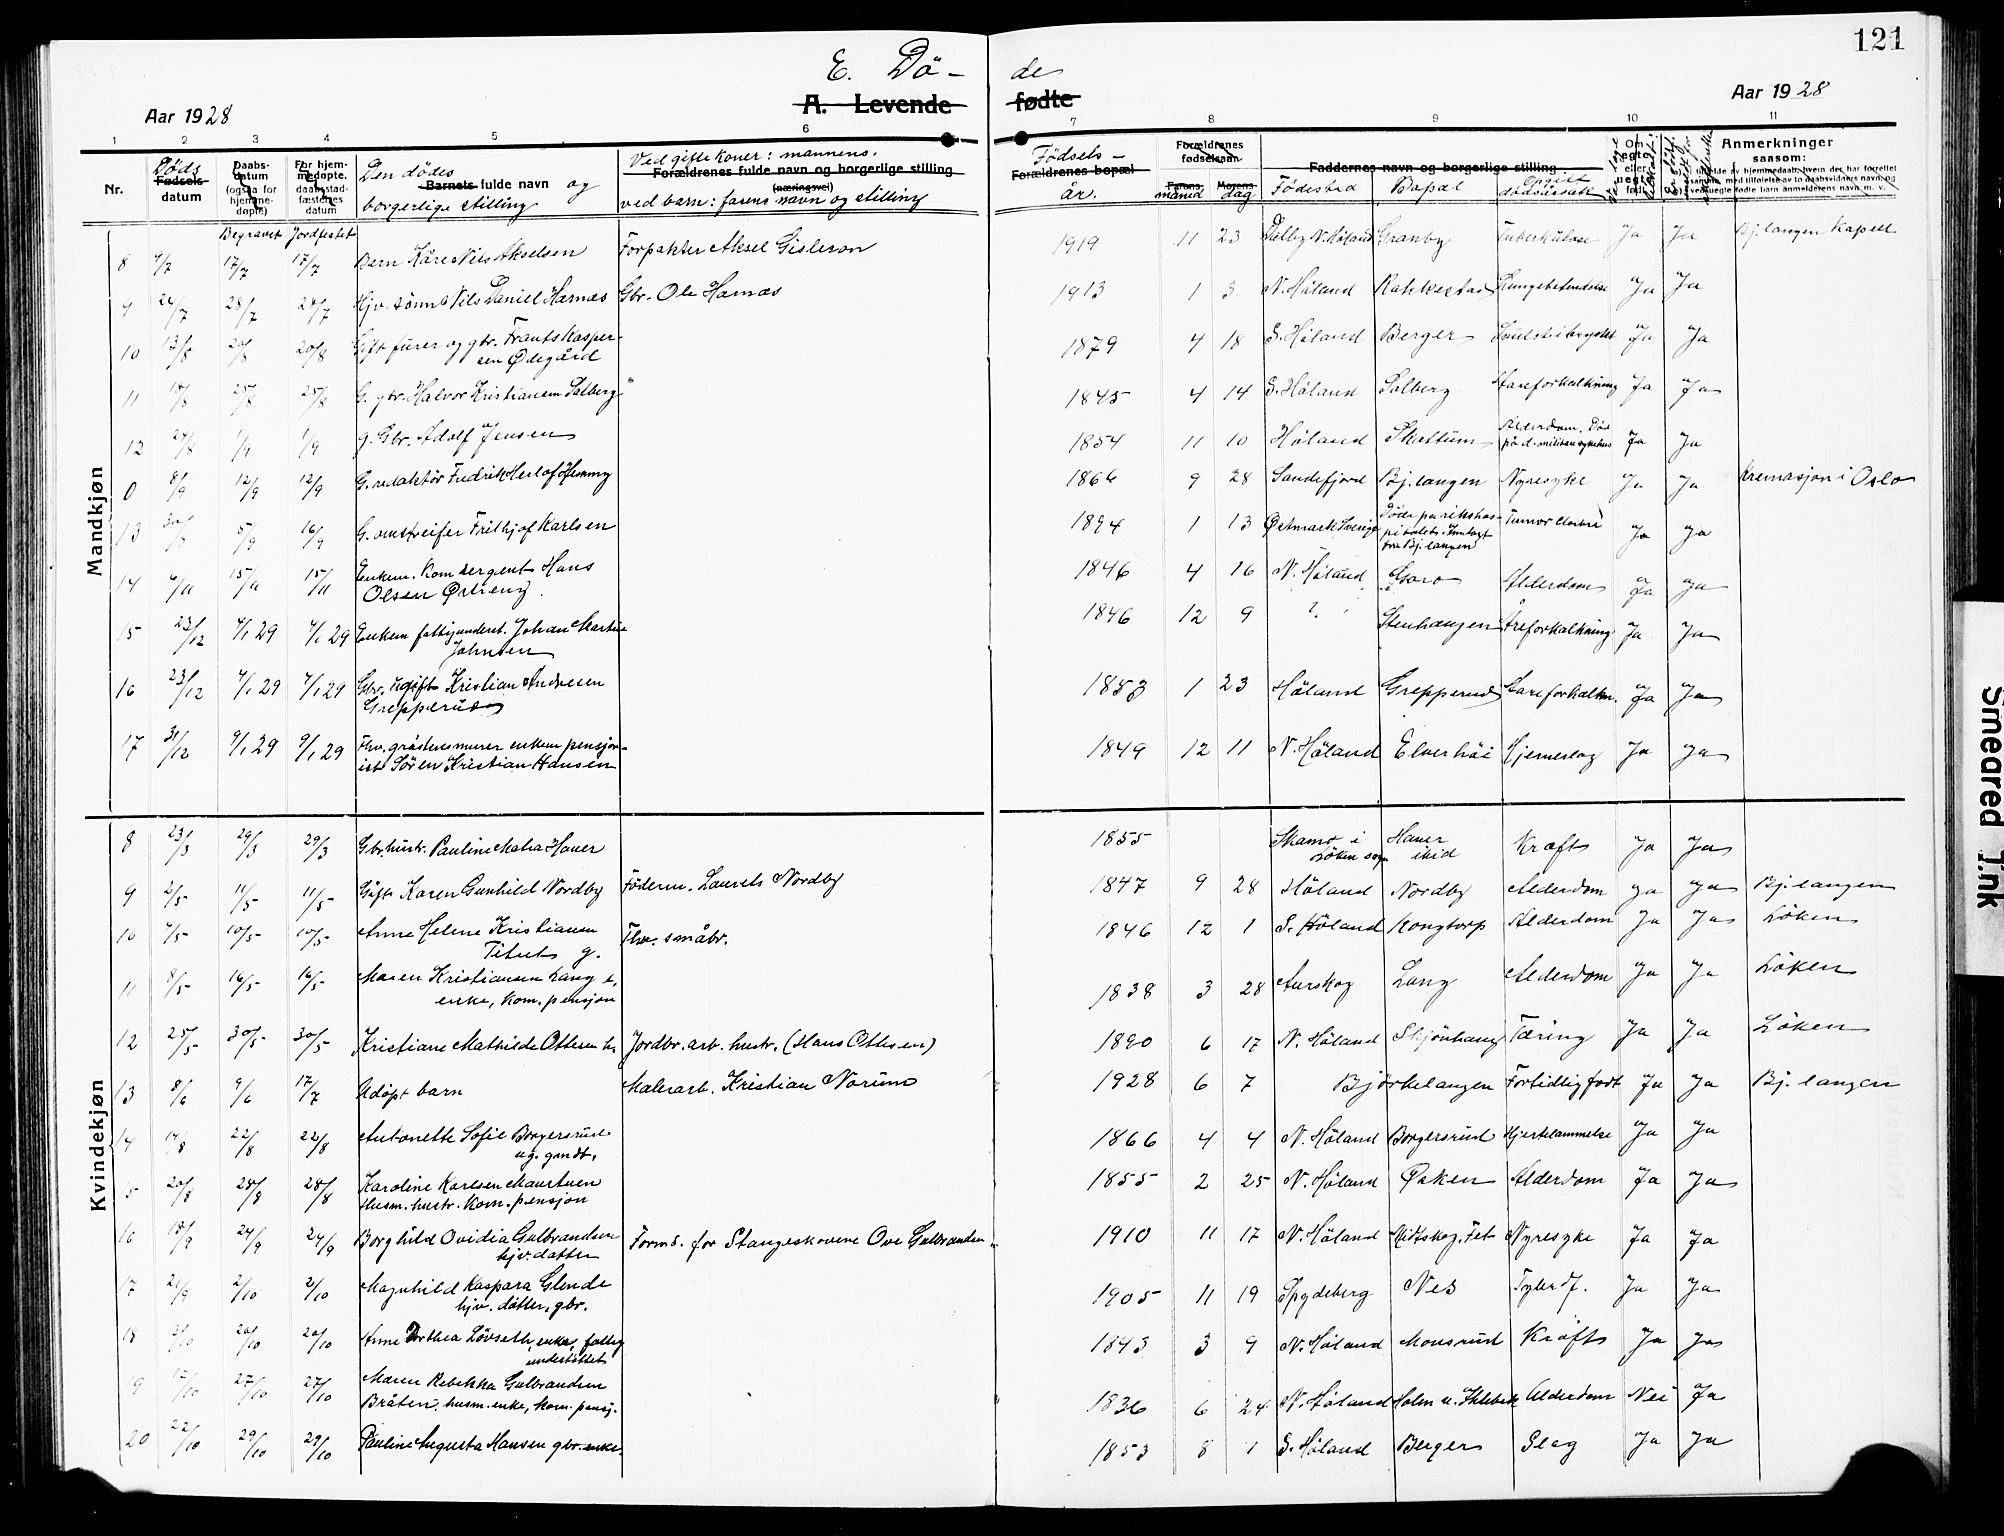 121
E. Dö- de
A. Levende fødte
Aar 1928
Aar 1928
1 2 3 4 5 6 7 8 9 10 11
Nr.
Döds
Fødsels-
datum
Daabs-
datum
(ogsaa for
hjemme-
døpte)
For hjem-
medøpte.
daabsstad-
fæstelses
datum
Den dödes
Barnets fulde navn og
borgerlige stilling
Ved gifte koner: mannens.
Forældrenes fulde navn og borgerlige stilling
(næringsvei)
ved barn: farens navn og stilling
Födsels-
Forældrenes bopæl
år.
Forældrenes
fødselsaar
Farens Morens
måned dag
Faddernes navn og borgerlige stilling
Födested Bopæl Opgitt dødsårsak
Om
egte
eller
uegte
født
Anmerkninger
saasom:
Begravet Jordfestet
Mandkjøn
8 9/7 17/7 17/7 Barn Kåre Nils Akselsen Forpakter Aksel Gisleson 1919 11 23 Dalby N. Höland Granby Tuberkulose Ja Ja Bj.langen Kapell
9 24/7 28/7 28/7 Hjv. sönn Nils Daniel Harnæs Gbr. Ole Harnæs 1913 1 3 N. Höland Rakkestad Lungebetendelse Ja Ja
10 13/8 20/8 20/8 Gift furer og gbr. Frants Kasper-
sen Ødegård 1879 4 18 S. Höland Berger Ja Ja
11 18/8 25/8 25/8 G. gbr. Halvor Kristiansen Solberg 1845 4 14 S. Höland Solberg Åreforkalkning Ja Ja
12 27/8 1/9 1/9 g. Gbr. Adolf Jensen 1854 11 10 Höland Skattum Alderdom. Död
på d. militære sykehus Ja Ja
0 8/9 12/9 12/9 G. redaktör Fredrik Herlof Hemmy 1866 9 28 Sandefjord Bj.langen Nyresyke Ja Ja Kremasjon i Oslo
13 30/8 5/9 16/9 G. omstreifer Frithjof Karlsen 1894 1 13 Østmark Sverige Döde på rikshos-
pitalet. Innlagt
fra Bj.langen Tumor cerebri Ja Ja
14 6/11 15/11 15/11 Enkem. Kom. sergent Hans
Olsen Østreng 1846 4 16 N. Höland Alderdom Ja Ja
15 23/12 4/1 29 4/1 29 Enkem. fattigunderst. Johan Martin
Johnsen 1846 12 9 ? Stenhaugen Åreforkalkning Ja Ja
16 23/12 4/1 29 4/1 29 Gbr. ugift Kristian Andresen
Grepperud 1853 1 23 Höland Grepperud Aareforkalkn. Ja Ja
17 31/12 9/1 29 9/1 29 Fhv. gråstensmurer enkem. pensjon-
ist Sören Kristian Hansen 1849 12 11 N. Höland Elverhöi Hjerneslag Ja Ja
Kvindekjøn
8 23/3 29/3 29/3 Gbr. hustr. Pauline Matea Haner 1855 i
Höken sogn Haner
ibid Kræft Ja Ja
9 2/5 11/5 11/5 Gift Karen Gunhild Nordby Föderm. Laurits Nordby 1847 9 28 Höland Nordby Alderdom Ja Ja Bj.langen
10 4/5 10/5 10/5 Anne Helene Kristiansen
g. Fhv. småbr. 1846 12 1 S. Höland Kongtorp Alderdom Ja Ja Löken
11 8/5 16/5 16/5 Maren Kristiansen Lang
enke, kom. pensjon 1838 3 28 Aurskog Lang Alderdom Ja Ja Löken
12 25/5 30/5 30/5 Kristiane Mathilde Ottesen h. Jordbr. arb. hustr. (Hans Ottesen) 1890 6 17 N. Höland Skjönhaug Tæring Ja Ja Löken
13 8/6 9/6 17/7 Udöpt barn Malerarb. Kristian Norum 1928 6 7 Björkelangen Fortidlig født Ja Ja Bj.langen
14 14/8 22/8 22/8 Antonette Sofie Borgersrud
ug. 1866 4 4 N. Höland Borgersrud Hjertelammelse Ja Ja
15 20/8 28/8 28/8 Karoline Karlsen Maurtuen
Husm. hustr. Kom. pensjon 1855 2 25 N. Höland Øiken Alderdom Ja Ja
16 18/9 24/9 24/9 Borghild Ovidia Gulbrandsen
hjv. datter Formd. for Stangeskovene Ove Gulbrandsen 1910 11 17 N. Höland Midtskog, Fet Nyresyke Ja Ja
17 21/9 2/10 2/10 Magnhild Kaspara Glende
hjv. datter, gbr. 1905 11 19 Spydeberg Nes Ja Ja
18 3/10 20/10 20/10 Anne Dorthea Lövseth, enke, fattig
understöttet 1843 3 9 N. Höland Monsrud Kræft Ja Ja
19 17/10 27/10 27/10 Maren Rebekka Gulbrandsen
Bråten, husm. enke, kom. pensj. 1836 6 24 N. Höland Holm Alderdom Nei Ja
20 22/10 29/10 29/10 Pauline Augusta Hansen gbr. enke 1853 8 1 S. Höland Berger Slag Ja Ja
Smeared Ink